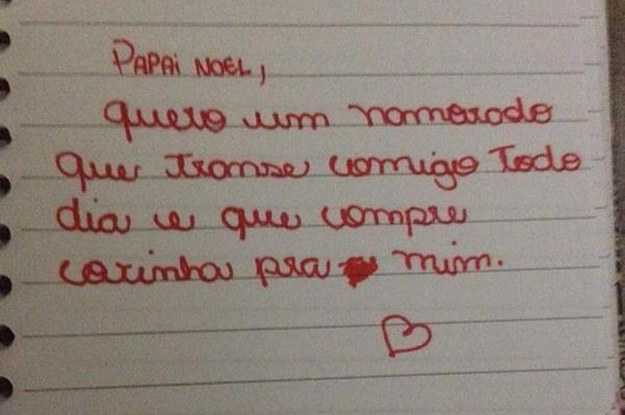 PAPAi NOEL,
quero um namorado
que transe comigo todo
dia e que compre
coxinha pra mim.